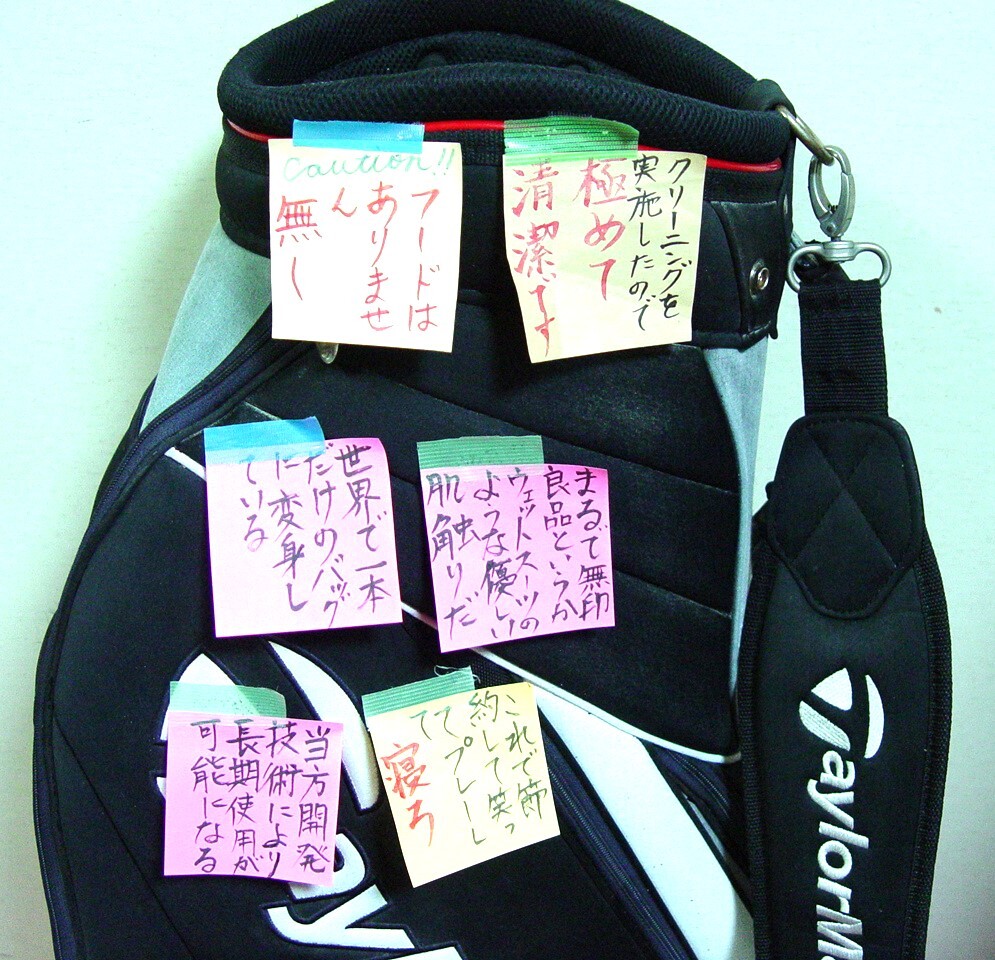 Caution!!
フードは
ありませ
ん
無し
クリーニングを
実施したので
極めて
清潔です
世界で一本
だけのバッグ
に変身し
ている
まるで無印
良品というか
ウェットスーツの
ような優しい
肌触りだ
当方開発
技術により
長期使用が
可能になる
これで節
約して笑っ
てプレーし
て
寝ろ
TaylorMa
ay